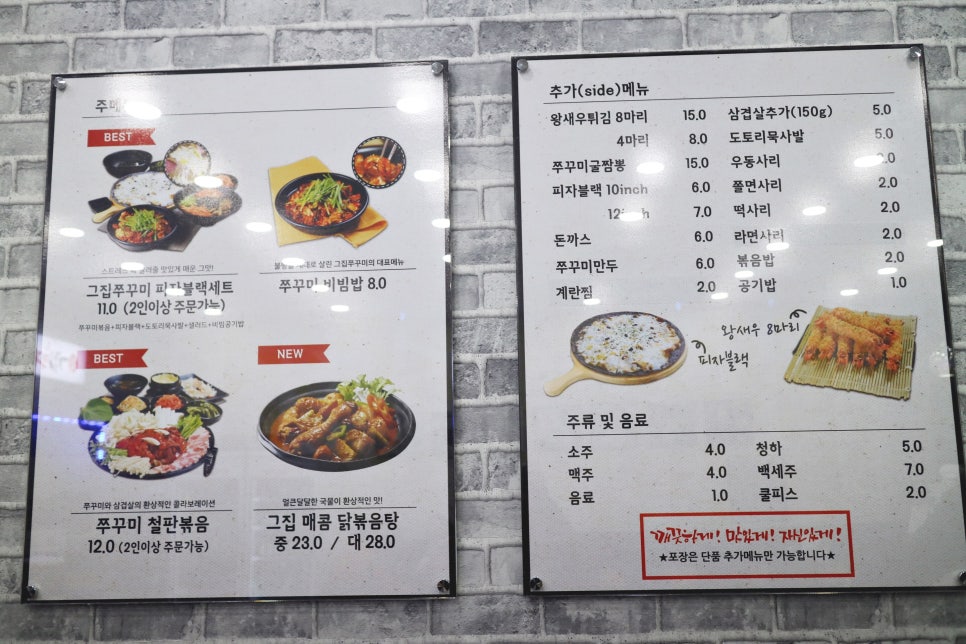 BEST
그집쭈꾸미 피자블랙세트
11.0 (2인이상 주문가능)
쭈꾸미볶음+피자블랙+도토리묵사발+샐러드+비빔공기밥
살린 그집쭈꾸미의 대표메뉴
쭈꾸미 비빔밥 8.0
BEST
쭈꾸미와 삼겹살의 환상적인 콜라보레이션
쭈꾸미 철판볶음
12.0 (2인이상 주문가능)
NEW
얼큰달달한 국물이 환상적인 맛!
그집 매콤 닭볶음탕
중 23.0 / 대 28.0
추가(side)메뉴
왕새우튀김 8마리 15.0
4마리 8.0
쭈꾸미굴짬뽕 15.0
피자블랙 10inch 6.0
7.0
돈까스 6.0
쭈꾸미만두 6.0
계란찜 2.0
삼겹살추가(150g) 5.0
도토리묵사발 5.0
우동사리
쫄면사리 2.0
떡사리 2.0
라면사리 2.0
볶음밥 2.0
공기밥 1.0
피자블랙
왕새우 8마리
주류 및 음료
소주 4.0
맥주 4.0
음료 1.0
청하 5.0
백세주 7.0
쿨피스 2.0
깨끗하게! 맛있게! 자신있게!
★포장은 단품 추가메뉴만 가능합니다★